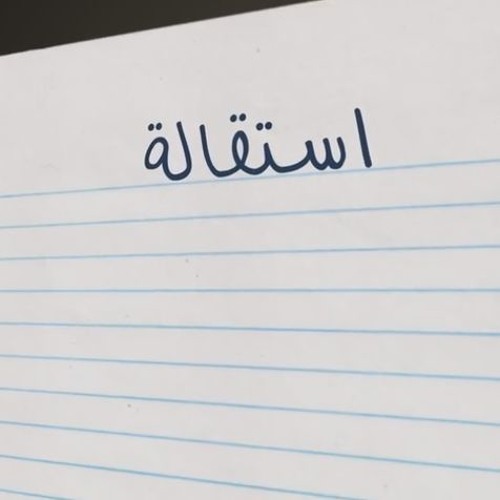 استقالة